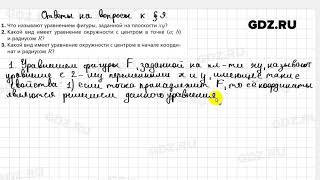 Ответы на вопросы к § 9
GDZ.RU
1. Что называют уравнением фигуры, заданной на плоскости xy?
2. Какой вид имеет уравнение окружности с центром в точке (a; b)
и радиусом R?
3. Какой вид имеет уравнение окружности с центром в начале коорди-
нат и радиусом R?
1. Уравнением фигуры F, заданной на пл-ти xy, называют
уравнение с 2-му переменными x и y, имеющее такие
свойства: 1) если точка принадлежит F, то её координаты
являются решением данного уравнения;